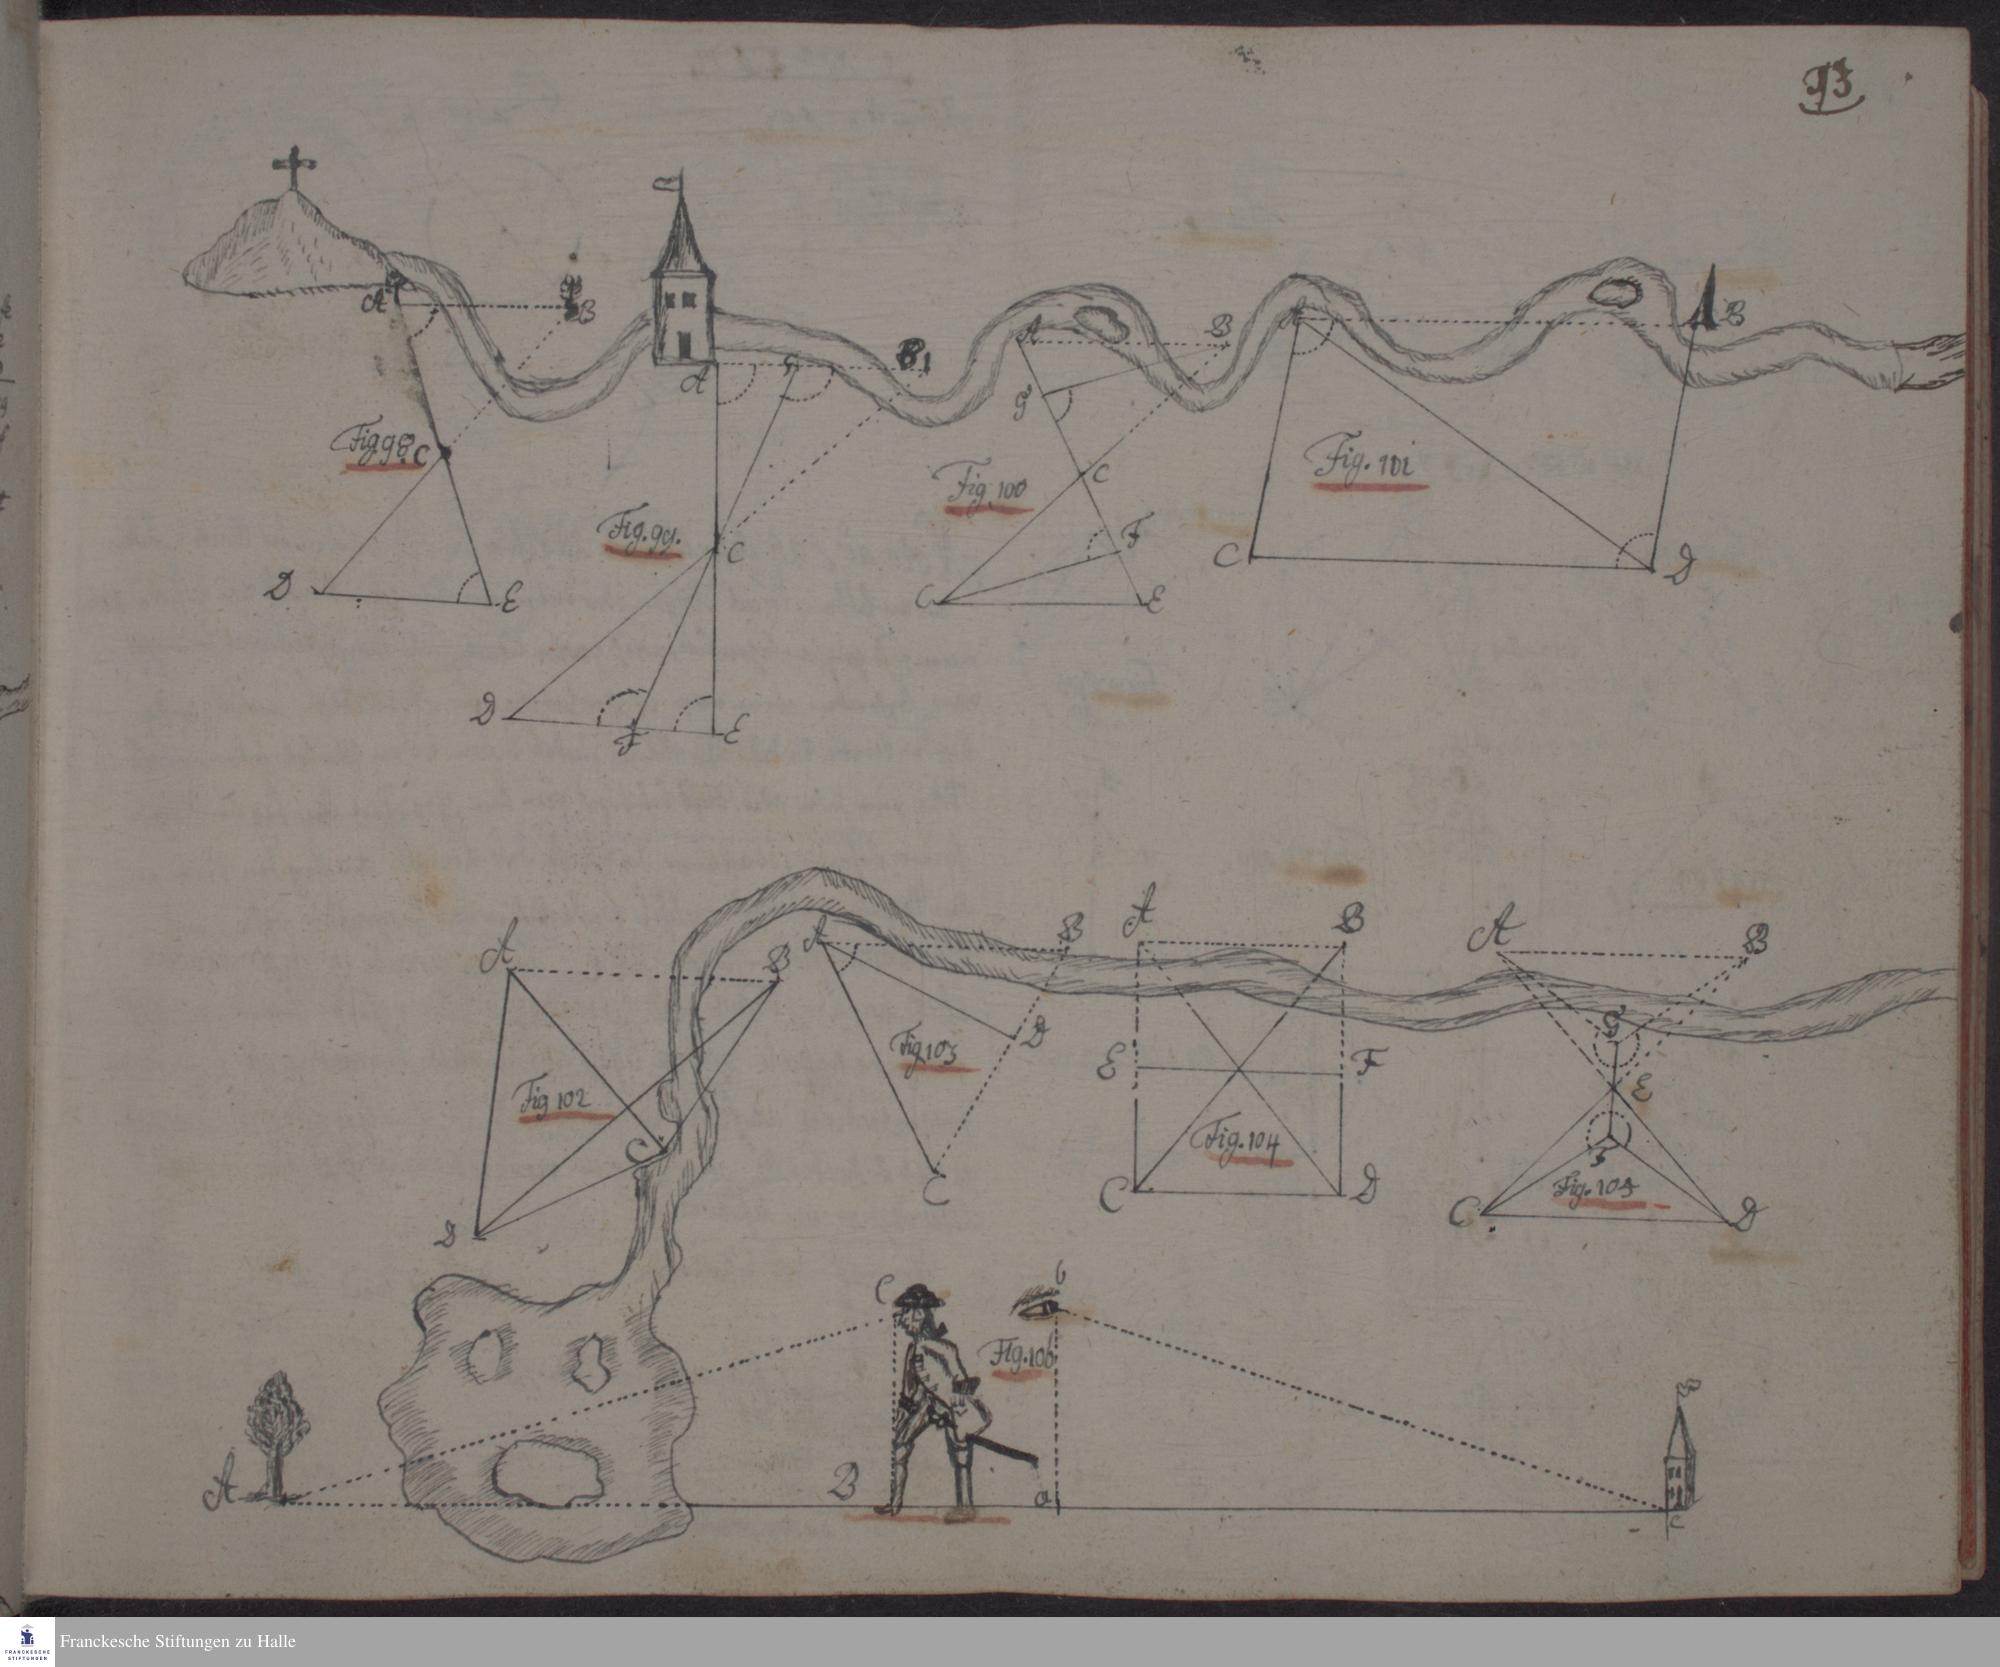 93
A
B
A
B
A
B
A
B
G
C
Fig 98
Fig. 99.
C
Fig 100
C
F
Fig. 101
C
D
D
E
C
E
D
F
E
A
B
A
B
A
B
A
B
Fig 102
C
D
Fig 103
D
C
E
F
Fig. 104
C
D
G
E
F
Fig. 105
C
D
C
b
Fig. 106
A
B
a
c
Franckesche Stiftungen zu Halle
FRANCKESCHE
STIFTUNGEN